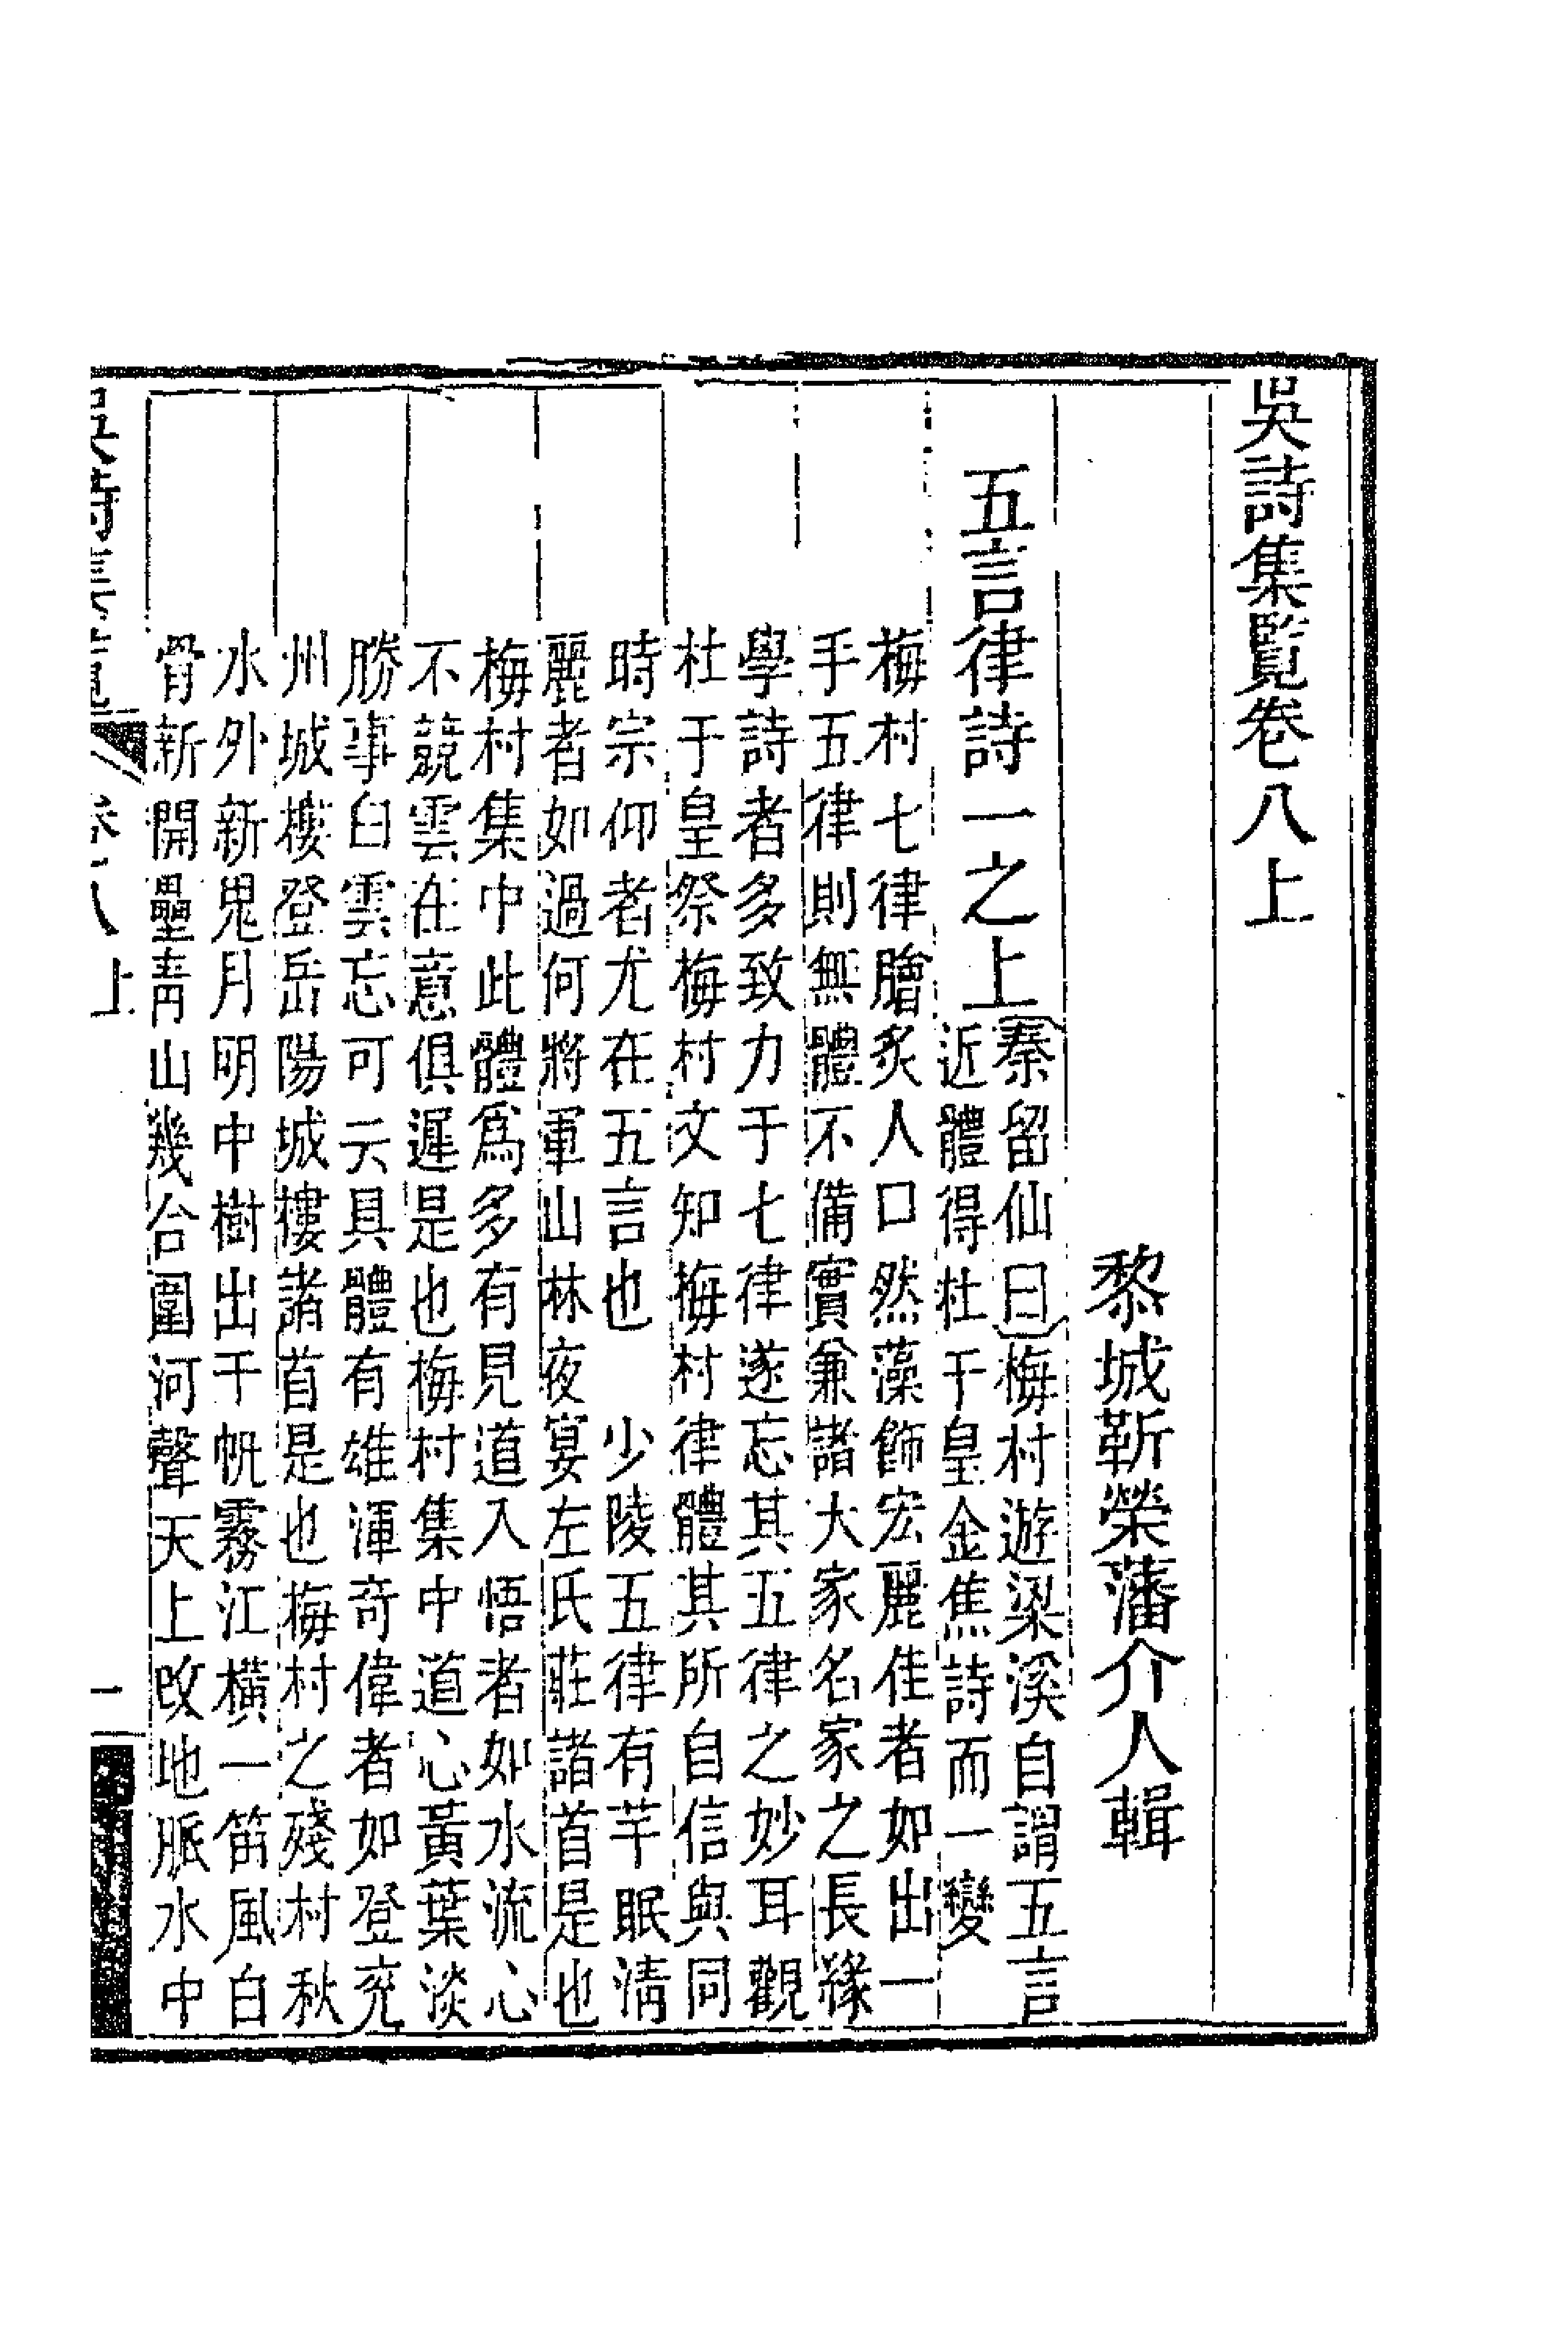 吳詩集覧卷八上
黎城靳榮藩介人輯
五言律詩一之上
秦留仙曰梅村遊梁溪自謂五言
近體得杜于皇金焦詩而一變
梅村七律膾炙人口然藻飾宏麗佳者如出一
手五律則無體不備實兼諸大家名家之長緣
學詩者多致力于七律遂忘其五律之妙耳觀
杜于皇祭梅村文知梅村律體其所自信與同
時宗仰者尤在五言也　少陵五律有芊眠淸
麗者如過何將軍山林夜宴左氏莊諸首是也
梅村集中此體爲多有見道入悟者如水流心
不競雲在意俱遲是也梅村集中道心黃葉淡
勝事白雲忘可云具體有雄渾奇偉者如登兖
州城樓登岳陽城樓諸首是也梅村之殘村秋
水外新鬼月明中樹出千帆霧江橫一笛風白
骨新開壘靑山幾合圍河聲天上改地脈水中
吳詩集覧
卷八上
一